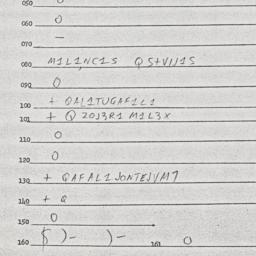 050 0
060 0
070 –
080 M1L1NC1S QStVIJ1S
090 0
100 + QAL1TUGAF1L1
101 + Q20J3R1 M1L3X
110 0
120 0
130 + QAFAL1JONTEJVM7
140 + Q
150 0
160 )– )– 161 0